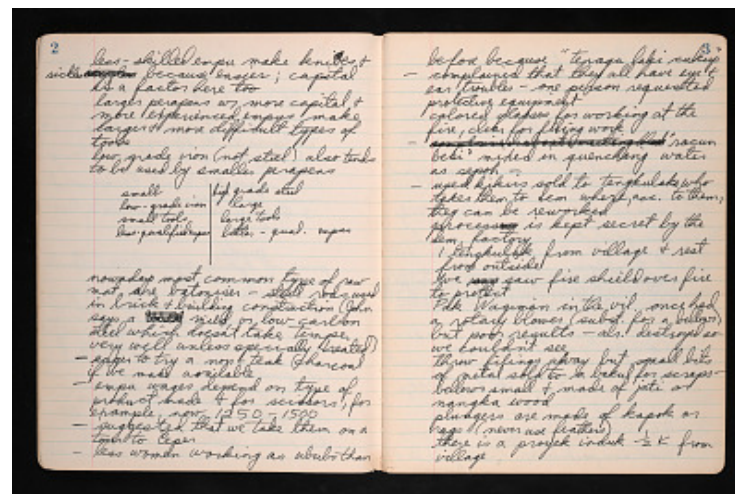 2
less-skilled empu make knives &
sickles because easier; capital
is a factor here too
larger perapens w/ more capital &
more experienced empus make
larger & more difficult types of
tools
low grade iron (not steel) also tends
to be used by smaller perapens
small | high grade steel
low-grade iron | large
small tools | large tools
less-qualified empu | better-qual. empus
nowadays most common type of raw
mat. are betoneser - steel rods used
in brick & building construction (John
says a mild or low carbon
steel which doesn't take temper
very well unless specially treated)
- eager to try a non-teak charcoal
if we make available
- empu wages depend on type of
product made & for scissors, for
example, now 1250 - 1500
- suggested that we take them on a
tour to Ceper
- less women working as ububs than
3
before because "tenaga laki cukup"
- complained that they all have eye &
ear troubles - one person requested
protective equipment
colored glasses for working at the
fire, clear for filing work
- "racun
besi" mixed in quenching water
as sepoh -
- used kikirs sold to tengkulaks who
takes them to Sem where, acc. to them,
they can be reworked
process is kept secret by the
Sem factory
1 tengkulak from village & rest
from outside
we saw fire shield over fire
to protect
Pak Wagiman in the vil once had
a rotary blower (subst. for a bellows)
but poor results - als. destroyed so
we couldn't see
throw filings away but small bits
of metal sold to a bakul for scraps-
bellows small & made of jati or
nangka wood
plungers are made of kapok or
rags (never use feathers)
there is a proyek induk - ½ K from
village